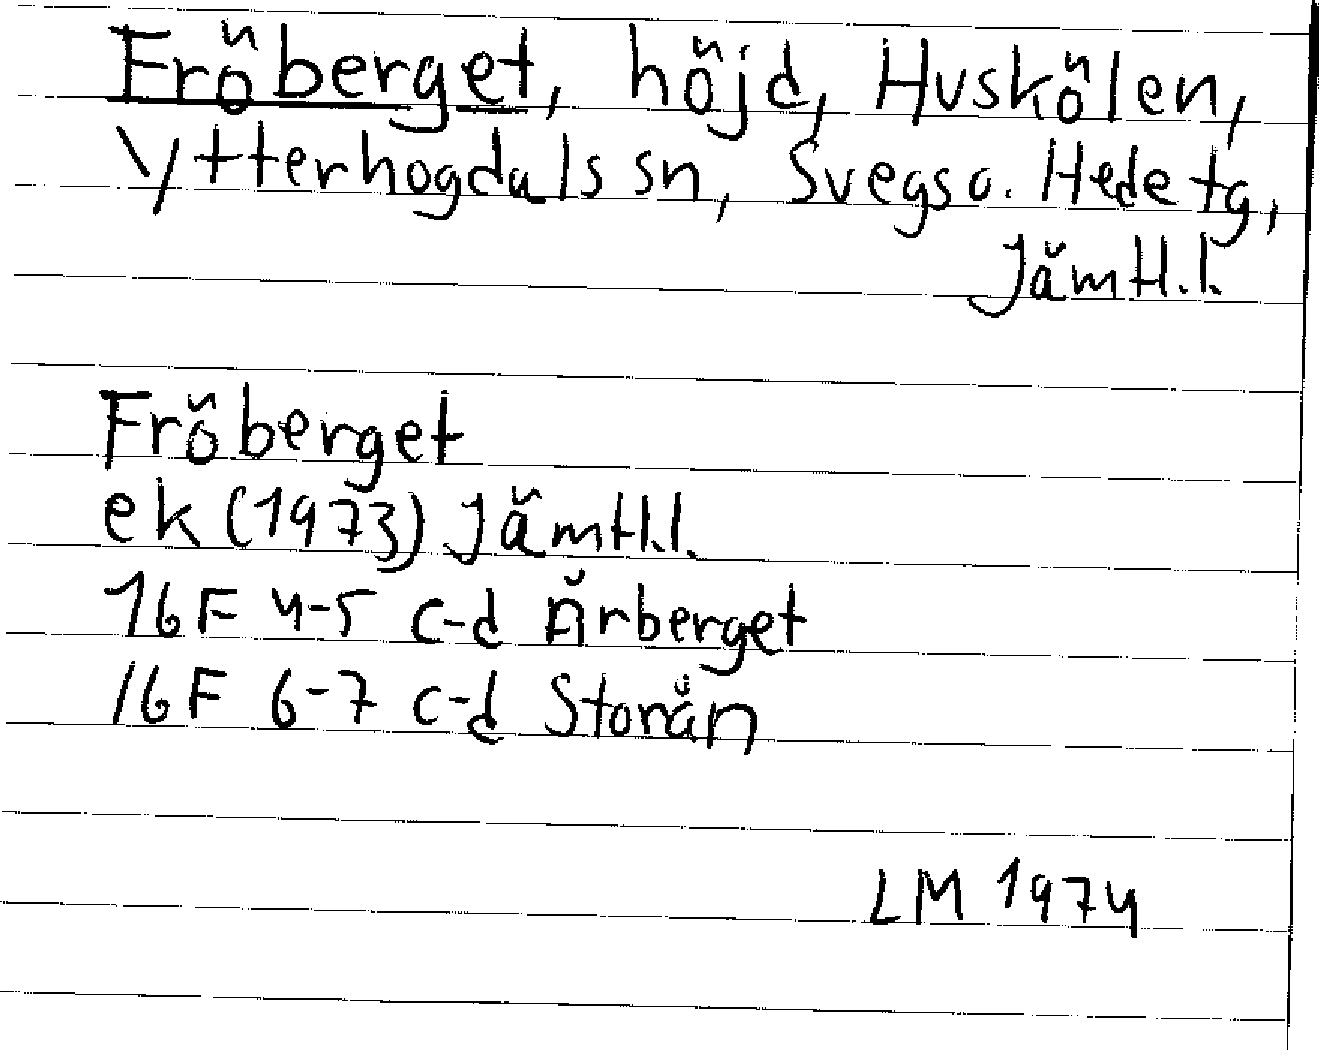 Fröberget, höjd, Huskölen,
Ytterhogdals sn, Svegs o. Hede tg,
Jämtl.l.
Fröberget
ek (1973) Jämtl.l.
16F 4-5 c-d Ärberget
16F 6-7 c-d Storån
LM 1974